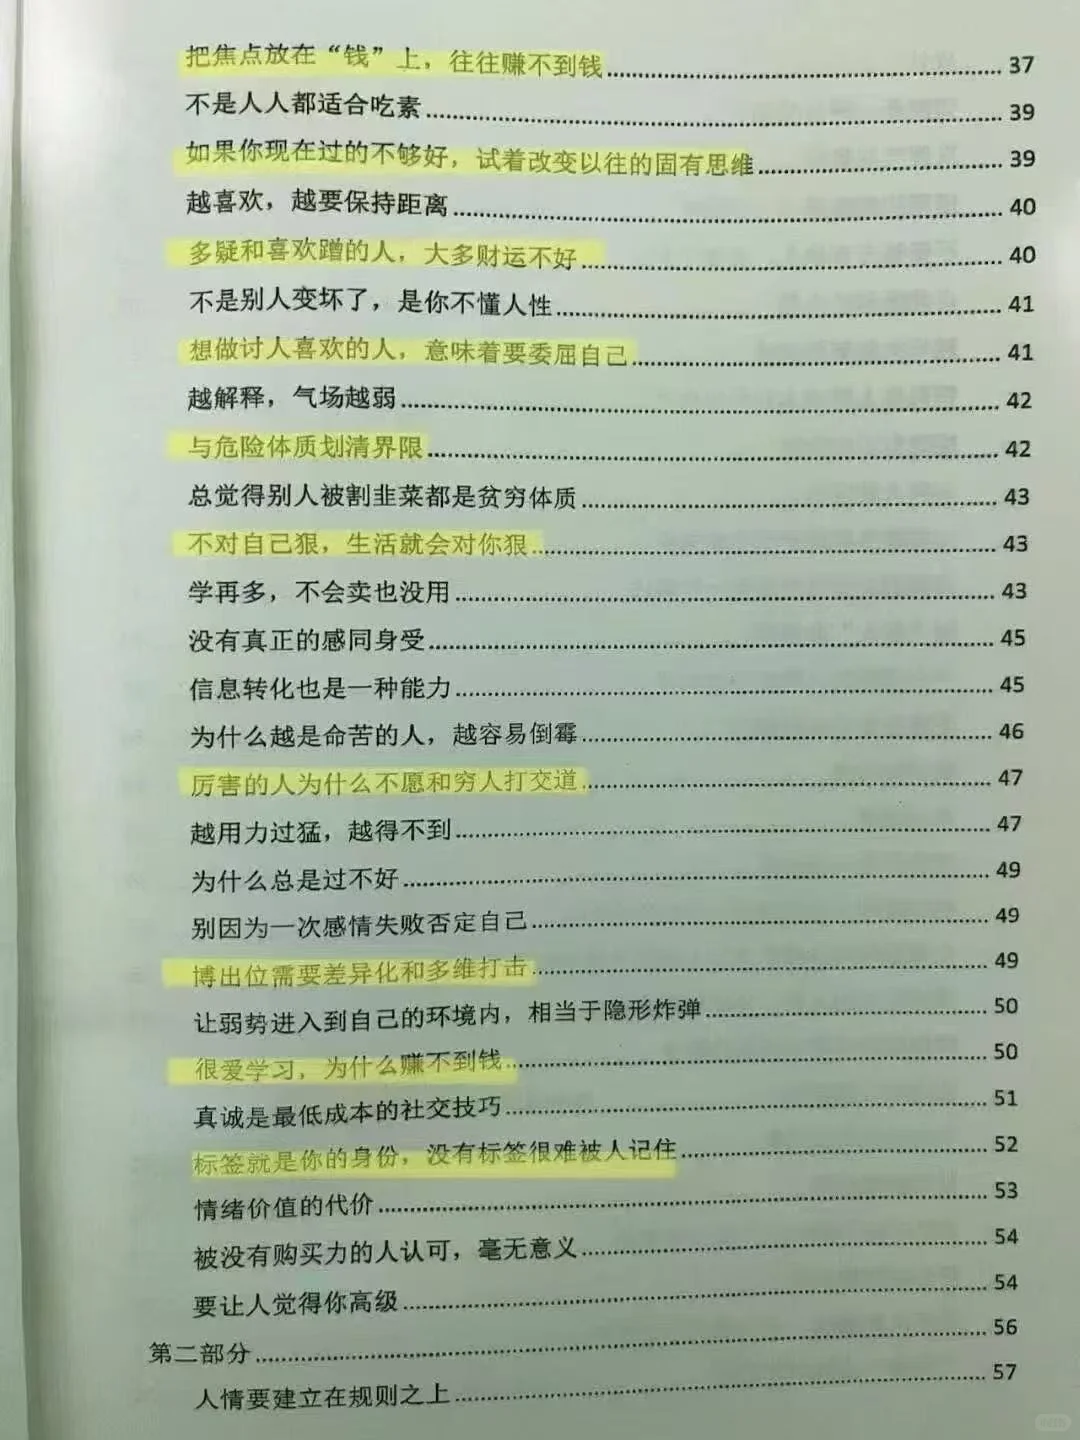 把焦点放在“钱”上，往往赚不到钱 37
不是人人都适合吃素 39
如果你现在过的不够好，试着改变以往的固有思维 39
越喜欢，越要保持距离 40
多疑和喜欢蹭的人，大多财运不好 40
不是别人变坏了，是你不懂人性 41
想做讨人喜欢的人，意味着要委屈自己 41
越解释，气场越弱 42
与危险体质划清界限 42
总觉得别人被割韭菜都是贫穷体质 43
不对自己狠，生活就会对你狠 43
学再多，不会卖也没用 43
没有真正的感同身受 45
信息转化也是一种能力 45
为什么越是命苦的人，越容易倒霉 46
厉害的人为什么不愿和穷人打交道 47
越用力过猛，越得不到 47
为什么总是过不好 49
别因为一次感情失败否定自己 49
博出位需要差异化和多维打击 49
让弱势进入到自己的环境内，相当于隐形炸弹 50
很爱学习，为什么赚不到钱 50
真诚是最低成本的社交技巧 51
标签就是你的身份，没有标签很难被人记住 52
情绪价值的代价 53
被没有购买力的人认可，毫无意义 54
要让人觉得你高级 54
第二部分 56
人情要建立在规则之上 57